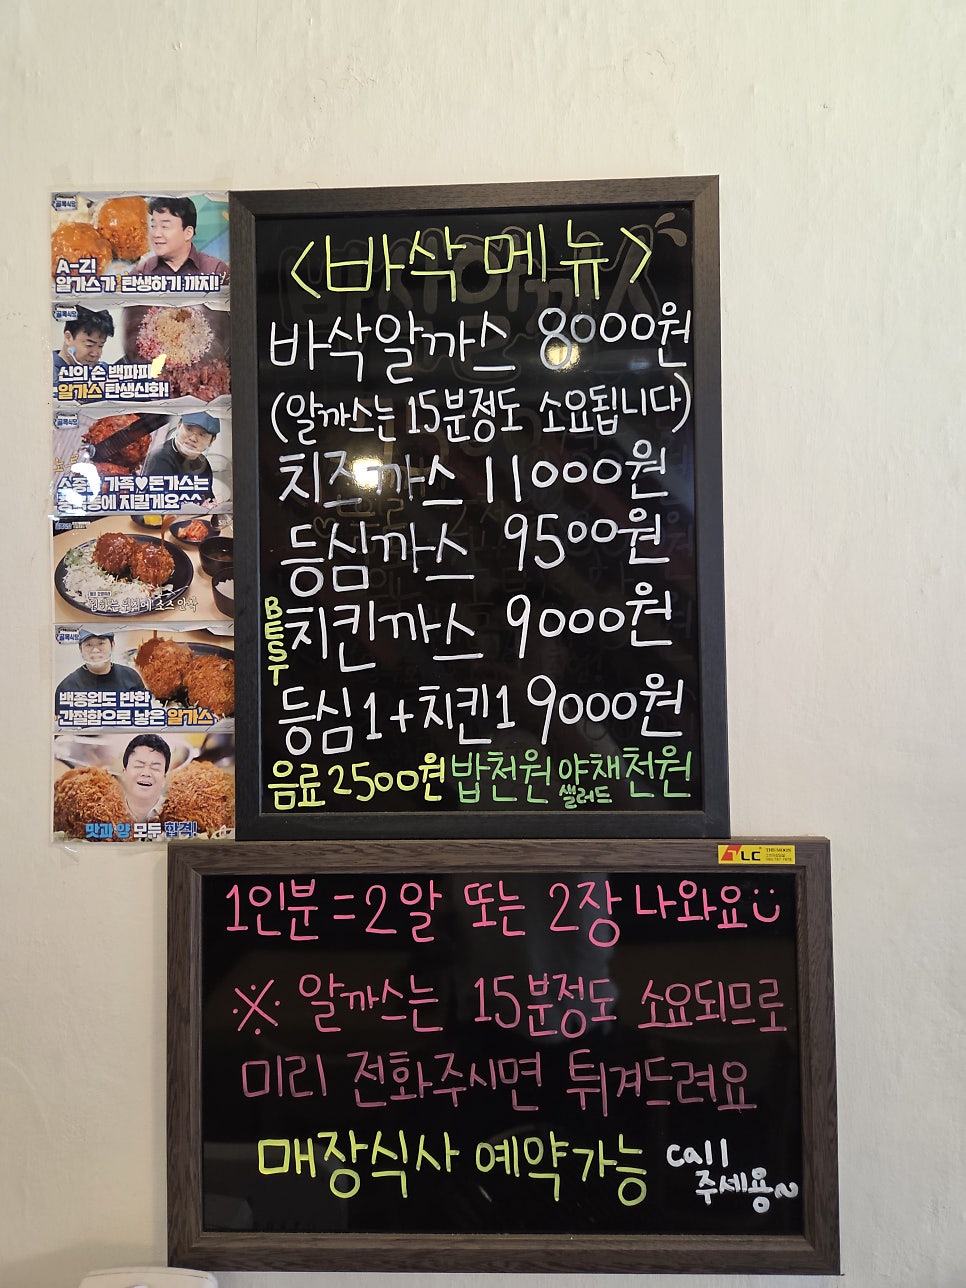 골목식당
A-Z!
알까스가 탄생하기 까지!
신의 손 백파파
알까스 탄생신화!
골목식당
가족♥돈가스는
지킬게요^^
백종원도 반한
간절함으로 낳은 알까스
맛과 양 모두 합격!
<바삭메뉴>
바삭알까스 8000원
(알까스는 15분정도 소요됩니다)
치즈까스 11000원
등심까스 9500원
BEST 치킨까스 9000원
등심1+치킨1 9000원
음료 2500원 밥천원 야채천원
샐러드
TLC
1인분=2알 또는 2장 나와요
※ 알까스는 15분정도 소요되므로
미리 전화주시면 튀겨드려요
매장식사 예약가능 call
주세용~